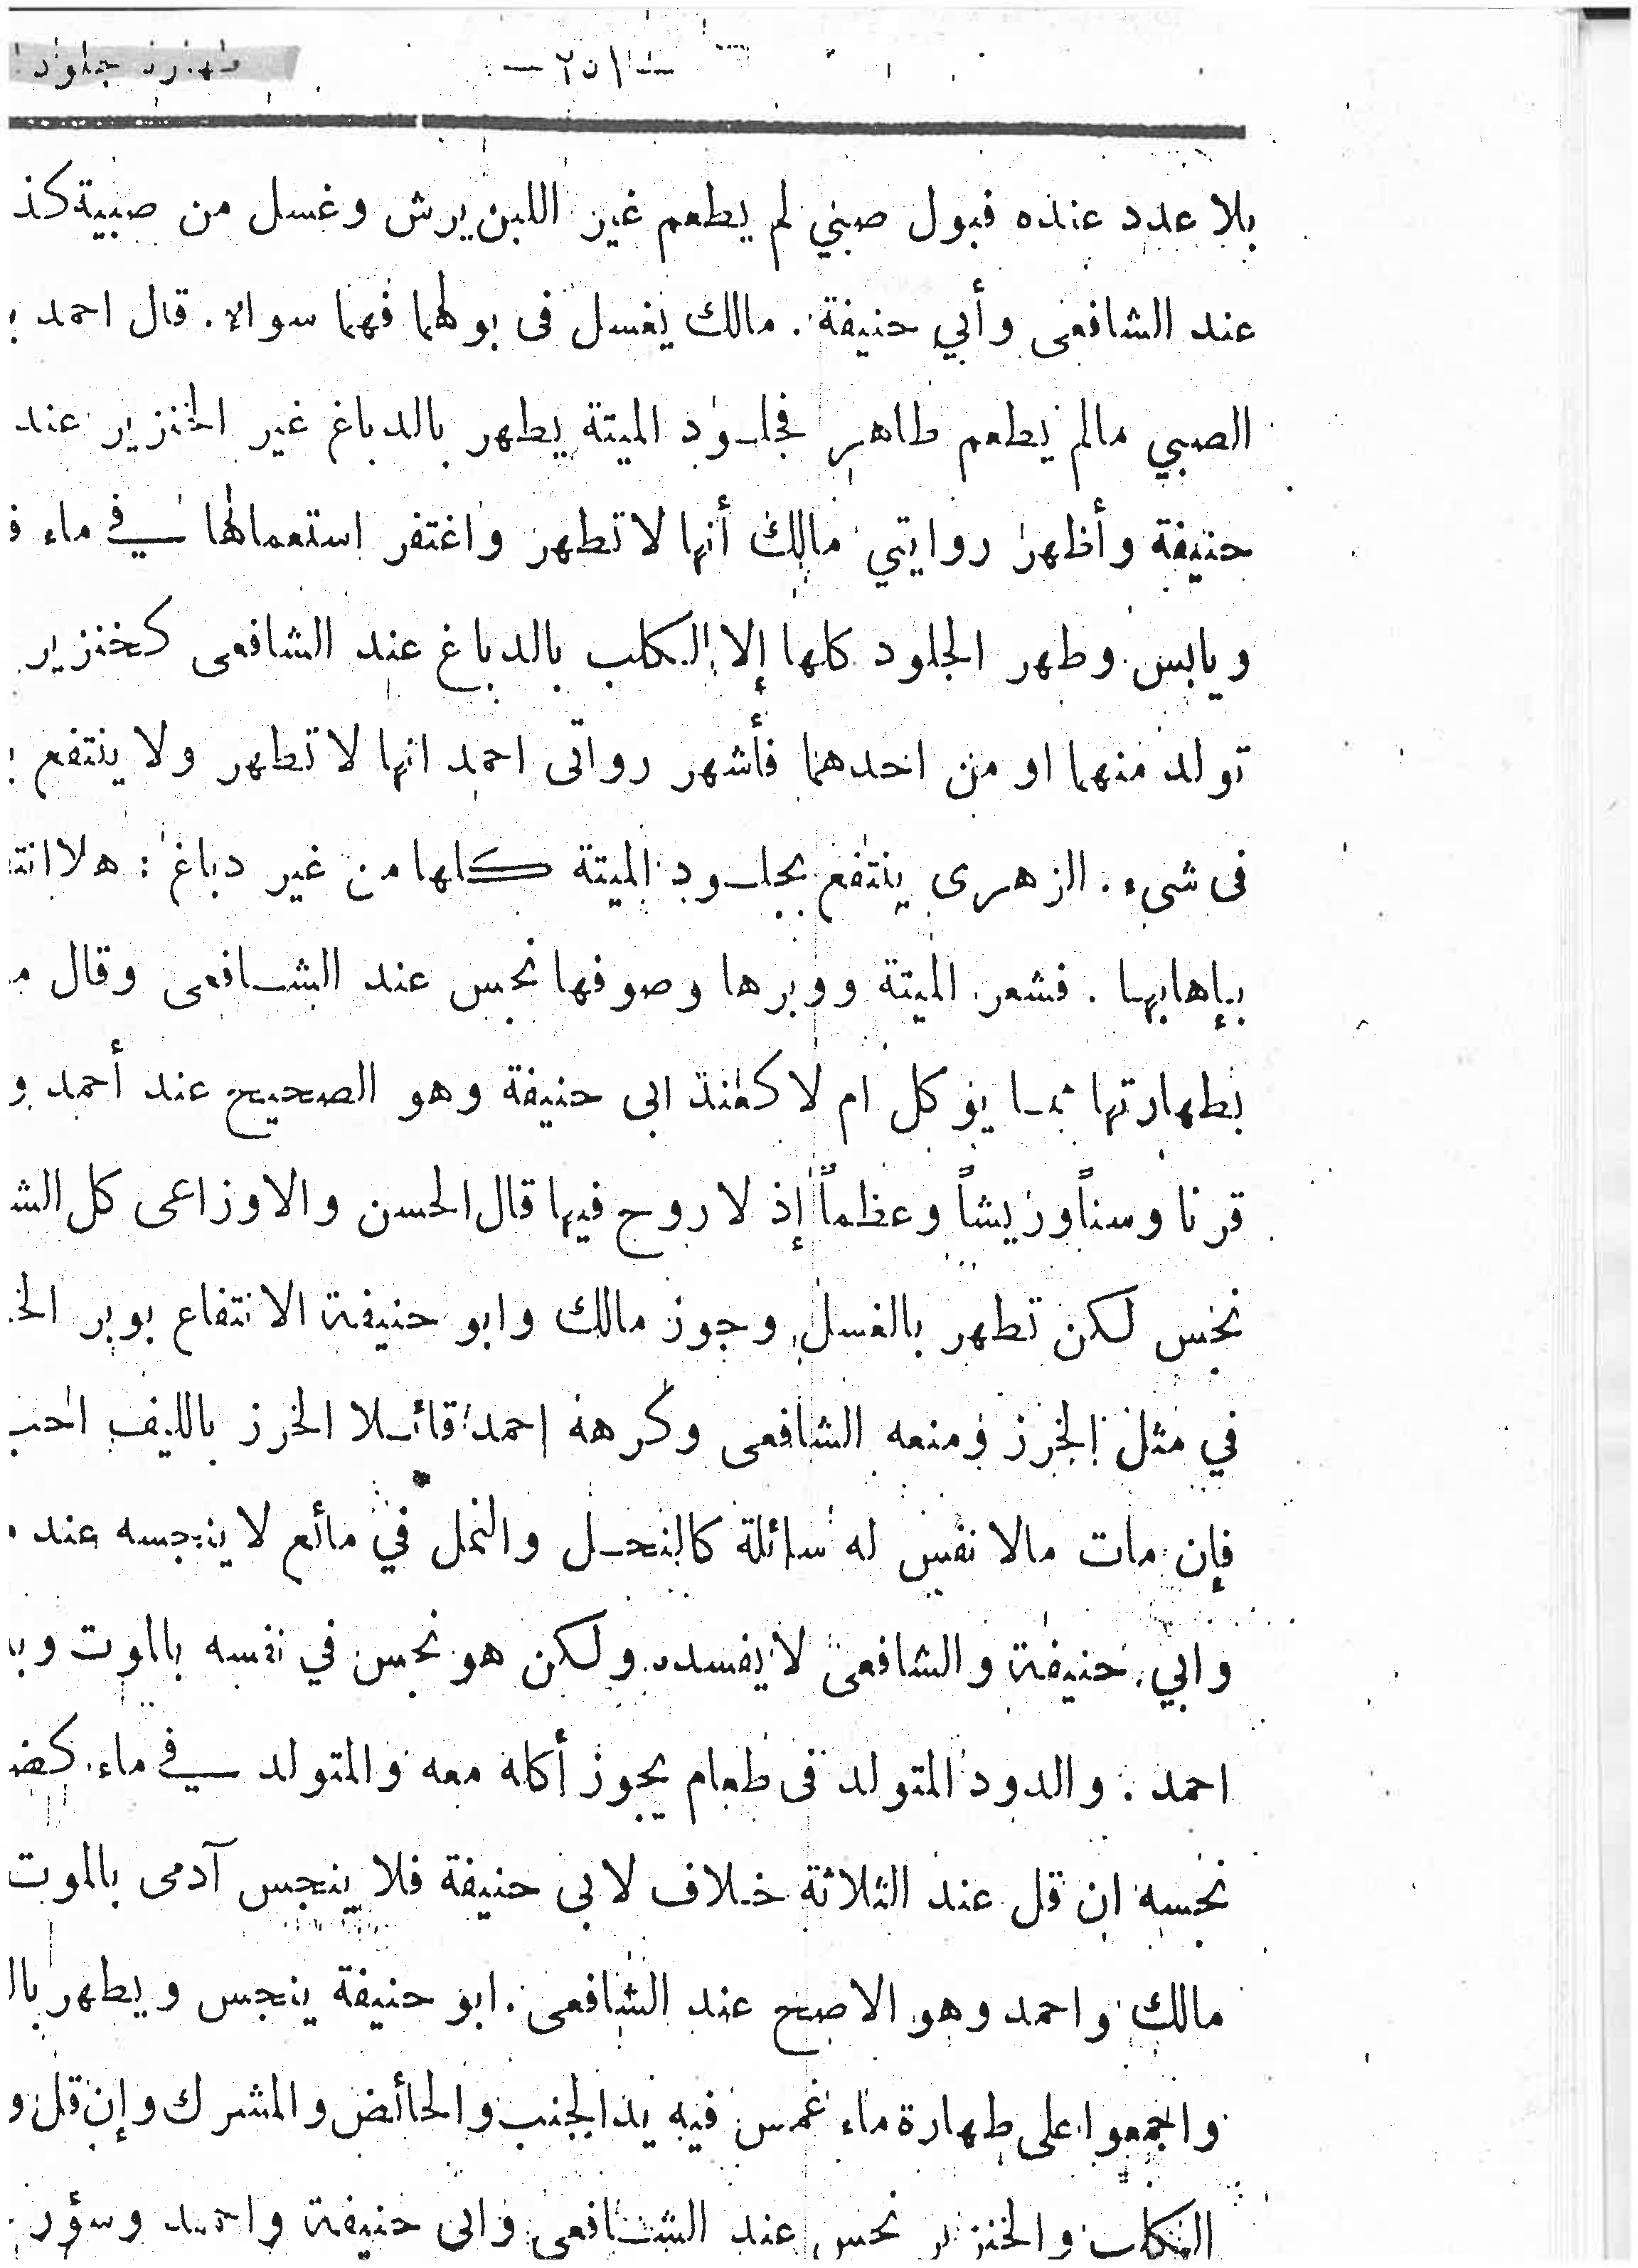 طهارة جلود
— ٢٥١ —
بلا عدد عنده فبول صبي لم يطعم غير اللبن يرش وغسل من صبية كذ
عند الشافعى وأبي حنيفة . مالك يغسل فى بولهما فهما سواء . قال احمد
الصبي مالم يطعم طاهر فجلود الميتة يطهر بالدباغ غير الخنزير عند
حنيفة وأظهر روايتي مالك أنها لا تطهر واغتفر استعمالها في ماء
ويابس وطهر الجلود كلها إلا الكلب بالدباغ عند الشافعى كخنزير
تولد منهما او من احدهما فأشهر رواتى احمد انها لا تطهر ولا ينتفع
فى شىء . الزهرى ينتفع بجلود الميتة كلها من غير دباغ : هلا انتف
بإهابها . فشعر الميتة ووبرها وصوفها نجس عند الشافعى وقال
بطهارتها مما يؤكل ام لا كعند ابى حنيفة وهو الصحيح عند أحمد و
قرنا وسناً وريشاً وعظماً إذ لا روح فيها قال الحسن والاوزاعى كل الش
نجس لكن تطهر بالغسل وجوز مالك وابو حنيفة الانتفاع بوبر الخ
في مثل الخرز ومنعه الشافعى وكرهه احمد قائلا الخرز بالليف احب
فإن مات مالا نفس له سائلة كالنحل والنمل في مائع لا ينجسه عند
وابي حنيفة والشافعى لا يفسده ولكن هو نجس في نفسه بالموت وبا
احمد . والدود المتولد فى طعام يجوز أكله معه والمتولد في ماء كض
نجسه ان قل عند الثلاثة خلاف لابى حنيفة فلا ينجس آدمى بالموت
مالك واحمد وهو الاصح عند الشافعى . ابو حنيفة ينجس ويطهر بال
واجمعوا على طهارة ماء غمس فيه يد الجنب والحائض والمشرك وإن قل و
الكلب والخنزير نجس عند الشافعى وابى حنيفة واحمد وسؤر